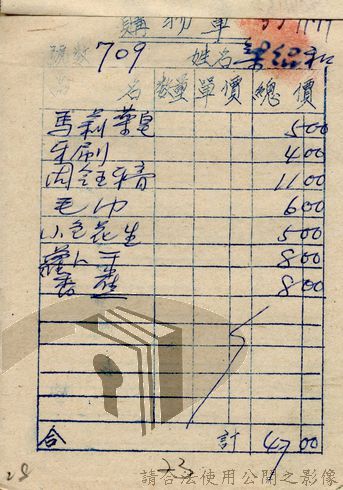 購物單
號數 709 姓名 梁紹和
品名 數量 單價 總價
馬莉藥皂 500
牙刷 400
固齡牙膏 1100
毛巾 600
小包花生 500
蘿卜干 800
800
合計 4700
23
28
請合法使用公開之影像